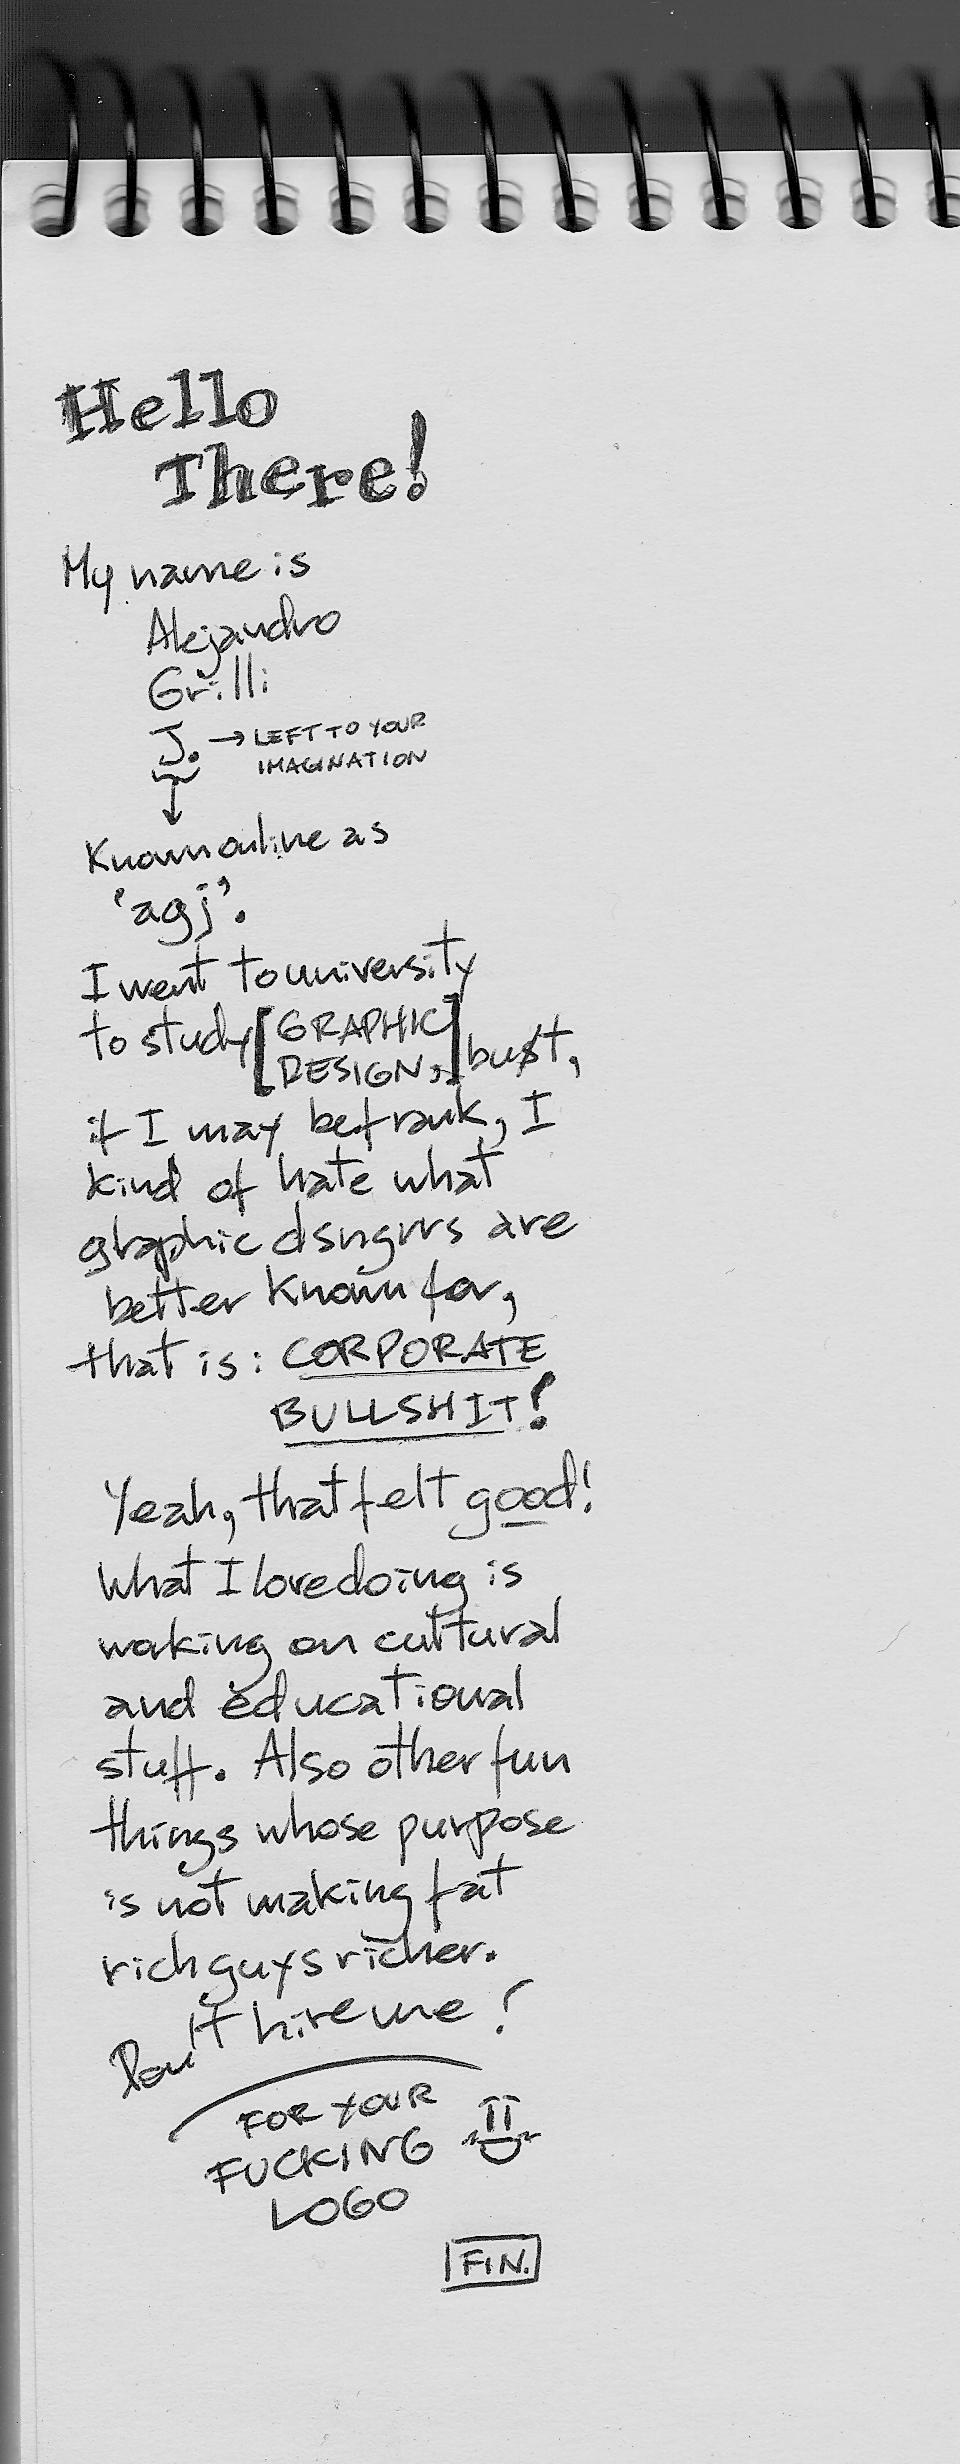 Hello
There!
My name is
Alejandro
Grilli
J. → LEFT TO YOUR
IMAGINATION
Known online as
'agj'.
I went to university
to study [GRAPHIC
DESIGN,] but,
if I may be frank, I
kind of hate what
graphic dsngrrs are
better known for,
that is: CORPORATE
BULLSHIT!
Yeah, that felt good!
What I love doing is
working on cultural
and educational
stuff. Also other fun
things whose purpose
is not making fat
rich guys richer.
Don't hire me!
FOR YOUR
FUCKING
LOGO
FIN.